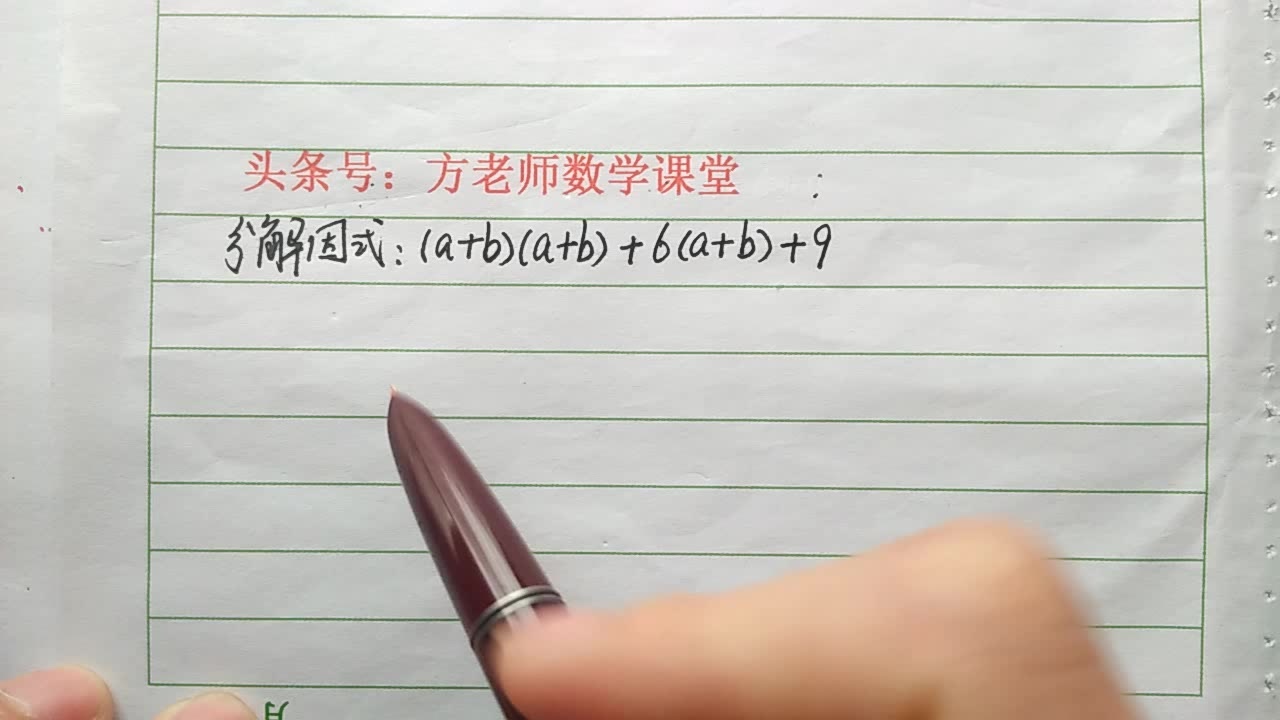 头条号：方老师数学课堂
分解因式：(a+b)(a+b)+6(a+b)+9
月